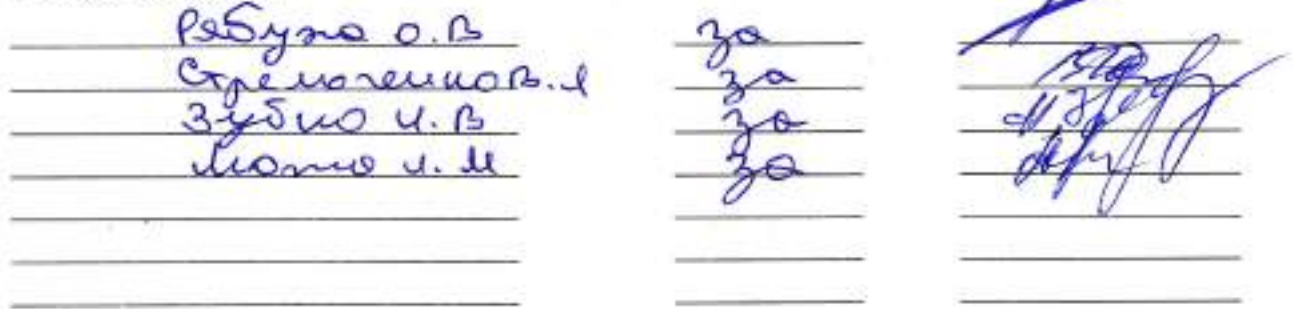 Рябуха О.В за
Стремоченко В.Я за
Зубко И.В за
И.М за